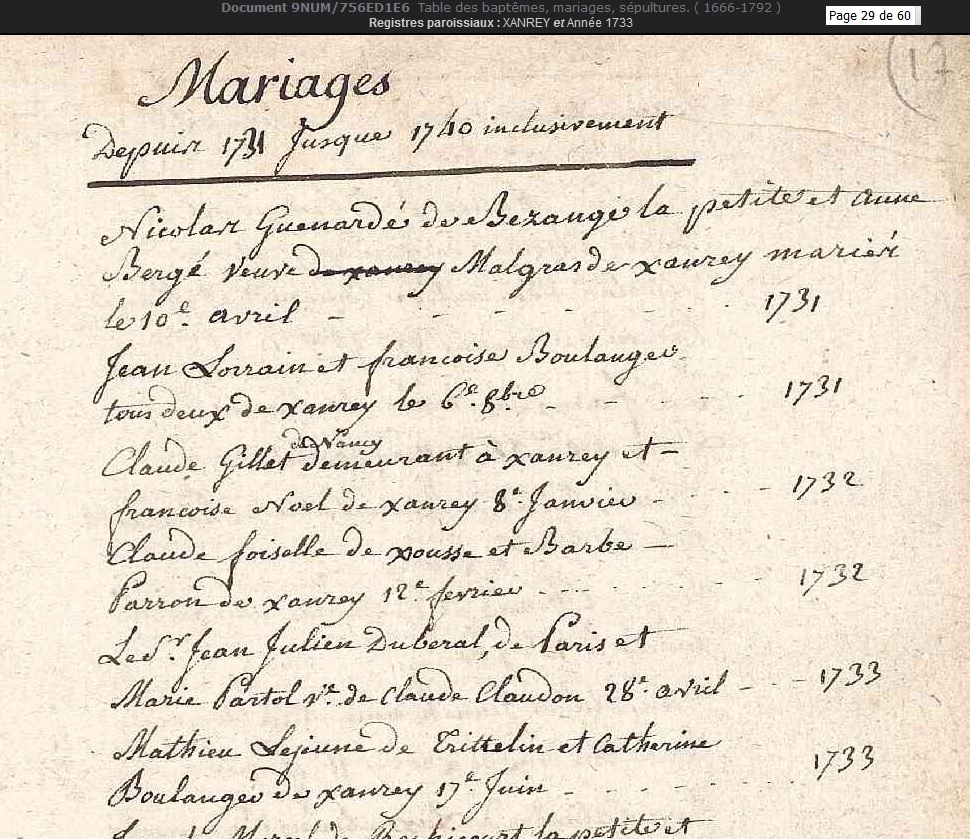 Document 9NUM/756ED1E6 Table des baptêmes, mariages, sépultures. ( 1666-1792 )
Registres paroissiaux : XANREY et Année 1733
Page 29 de 60
17
Mariages
Depuis 1731 Jusque 1740 inclusivement
Nicolas Guenardé de Bezange la petite et Anne
Bergé veuve de xanrey Malgras de xanrey mariés
le 10e. avril - - - - - 1731
Jean Lorrain et francoise Boulanger
tous deux de xanrey le 6e. 8bre - - - - 1731
de Nancy
Claude Gillet demeurant à xanrey et -
francoise Noel de xanrey 8e. Janvier - - - 1732
Claude foiselle de xousse et Barbe -
Parron de xanrey 12e fevrier - - - 1732
Le Sr. Jean Julien Duberal, de Paris et
Marie Partol ve. de Claude Claudon 28e. avril - - - 1733
Mathieu Lejeune de Trittelin et Catherine
Boulanger de xanrey 17e Juin - - - - 1733
la petite et